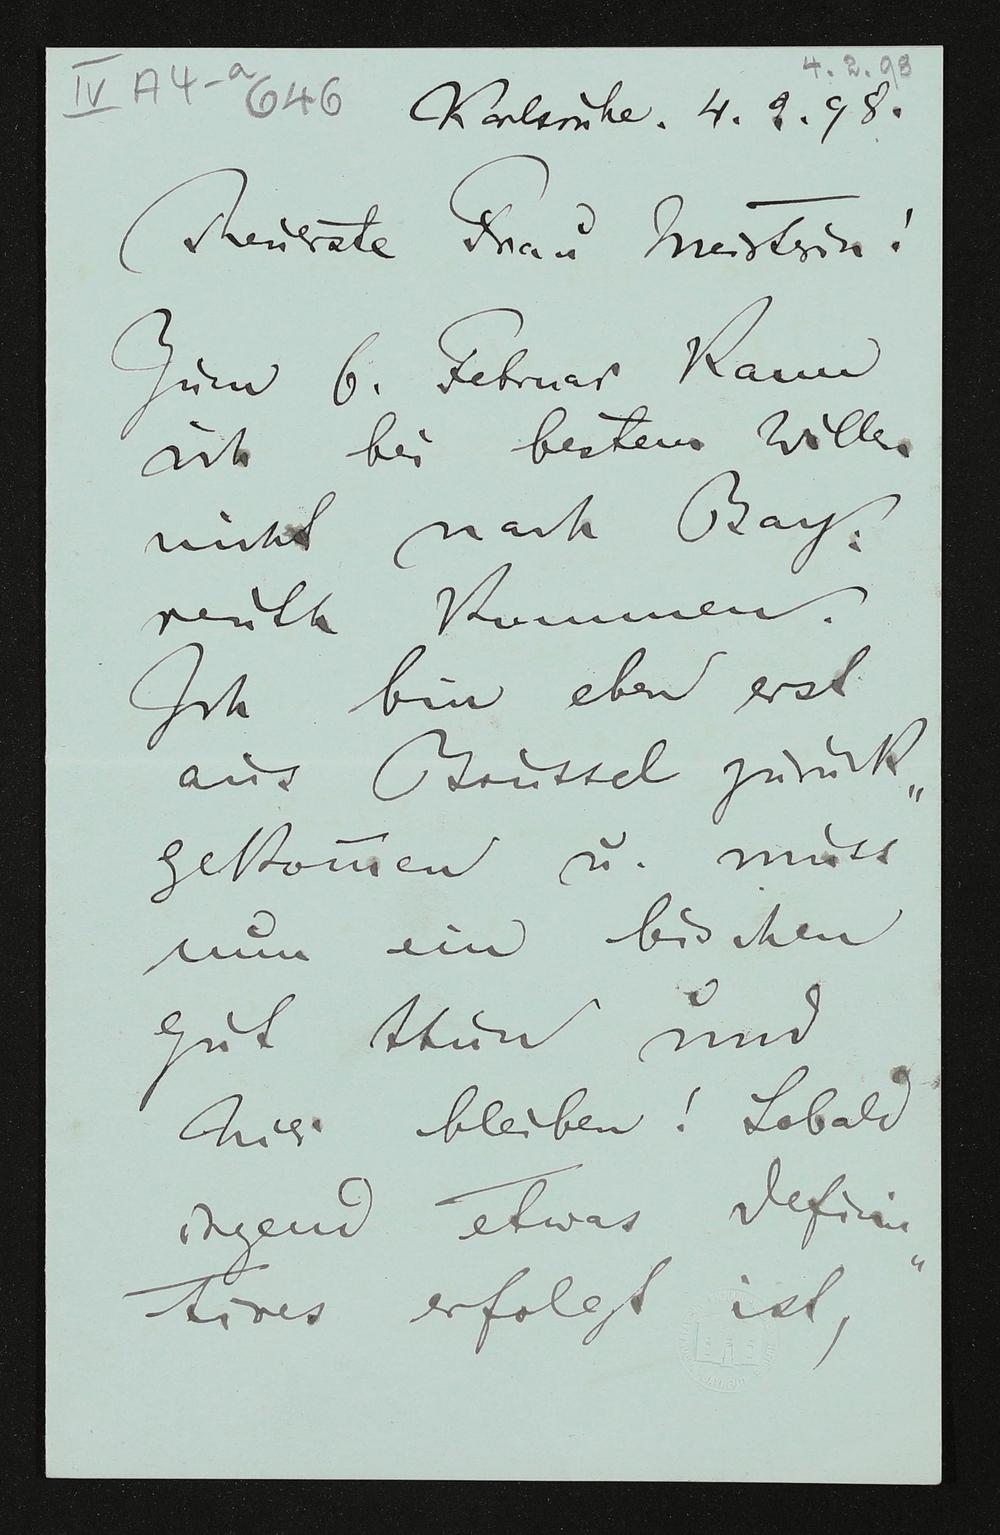 IV A4-a 646
4.2.98
Karlsruhe. 4. 2. 98.
Theuerste Frau Meisterin!
Zum 6. Februar kann
ich bei bestem Willen
nicht nach Bay:
reuth kommen.
Ich bin eben erst
aus Brüssel zurück„
gekom̄en u. muss
nun ein bischen
gut thun und
hier bleiben! Sobald
irgend etwas defini„
tives erfolgt ist,